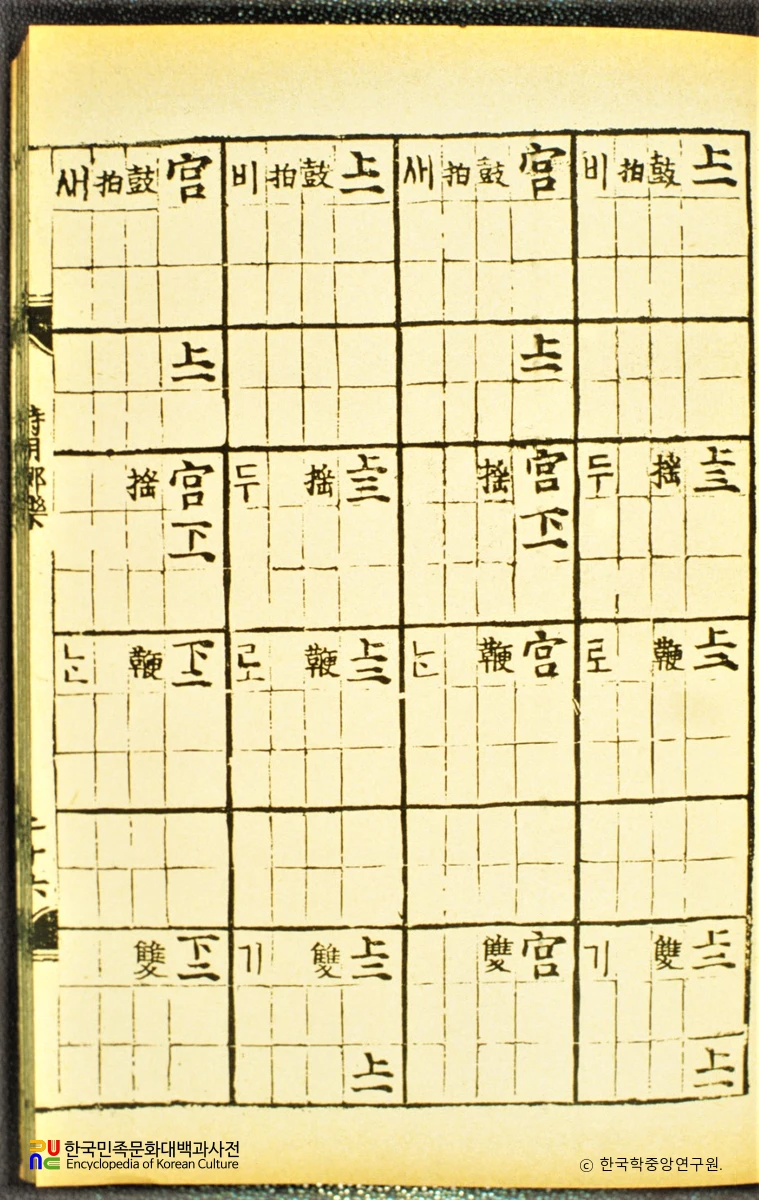 上一 上三 上三 上二 上一
鼓 搖 鞭 雙
拍
비 두 로 기
宮 上一 宮 下一 宮 宮
鼓 搖 鞭 雙
拍
새 ᄂᆞᆫ
上一 上三 上三 上二 上一
鼓 搖 鞭 雙
拍
비 두 로 기
宮 上一 宮 下一 下二 下二
鼓 搖 鞭 雙
拍
새 ᄂᆞᆫ
時用鄕樂
二十六
한국민족문화대백과사전
Encyclopedia of Korean Culture
© 한국학중앙연구원.